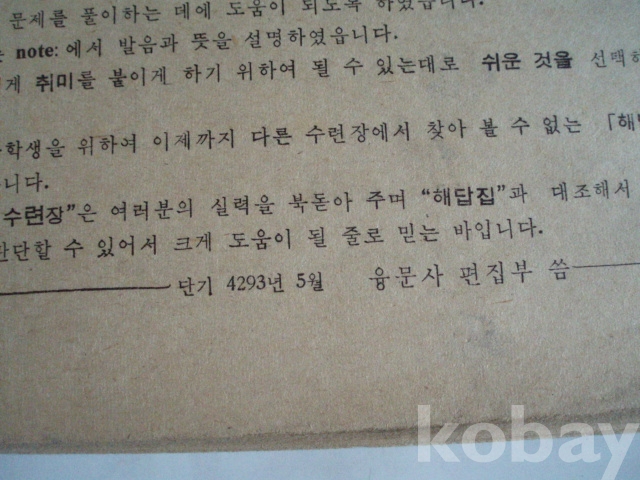 문제를 풀이하는 데에 도움이 되도록 하였습니다.
note: 에서 발음과 뜻을 설명하였읍니다.
게 취미를 붙이게 하기 위하여 될 수 있는대로 쉬운 것을 선택하
학생을 위하여 이제까지 다른 수련장에서 찾아 볼 수 없는 「해답
니다.
수련장”은 여러분의 실력을 북돋아 주며 “해답집”과 대조해서
판단할 수 있어서 크게 도움이 될 줄로 믿는 바입니다.
단기 4293년 5월 융문사 편집부 씀
kobay